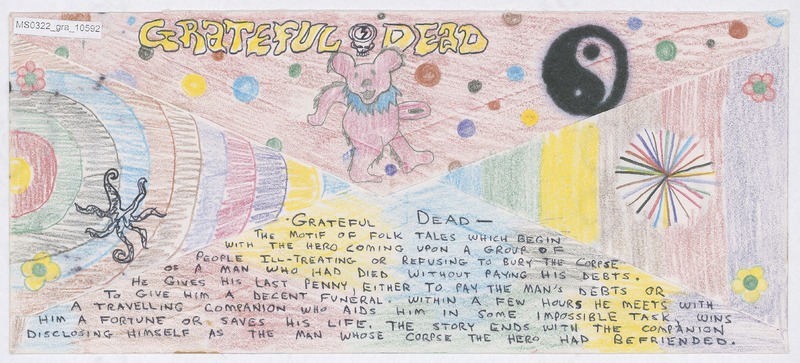 MS0322_gra_10592
GRATEFUL DEAD
GRATEFUL DEAD—
THE MOTIF OF FOLK TALES WHICH BEGIN
WITH THE HERO COMING UPON A GROUP OF
PEOPLE ILL-TREATING OR REFUSING TO BURY THE CORPSE
OF A MAN WHO HAD DIED WITHOUT PAYING HIS DEBTS.
HE GIVES HIS LAST PENNY, EITHER TO PAY THE MAN'S DEBTS OR
TO GIVE HIM A DECENT FUNERAL. WITHIN A FEW HOURS HE MEETS WITH
A TRAVELLING COMPANION WHO AIDS HIM IN SOME IMPOSSIBLE TASK, WINS
HIM A FORTUNE OR SAVES HIS LIFE. THE STORY ENDS WITH THE COMPANION
DISCLOSING HIMSELF AS THE MAN WHOSE CORPSE THE HERO HAD BEFRIENDED.